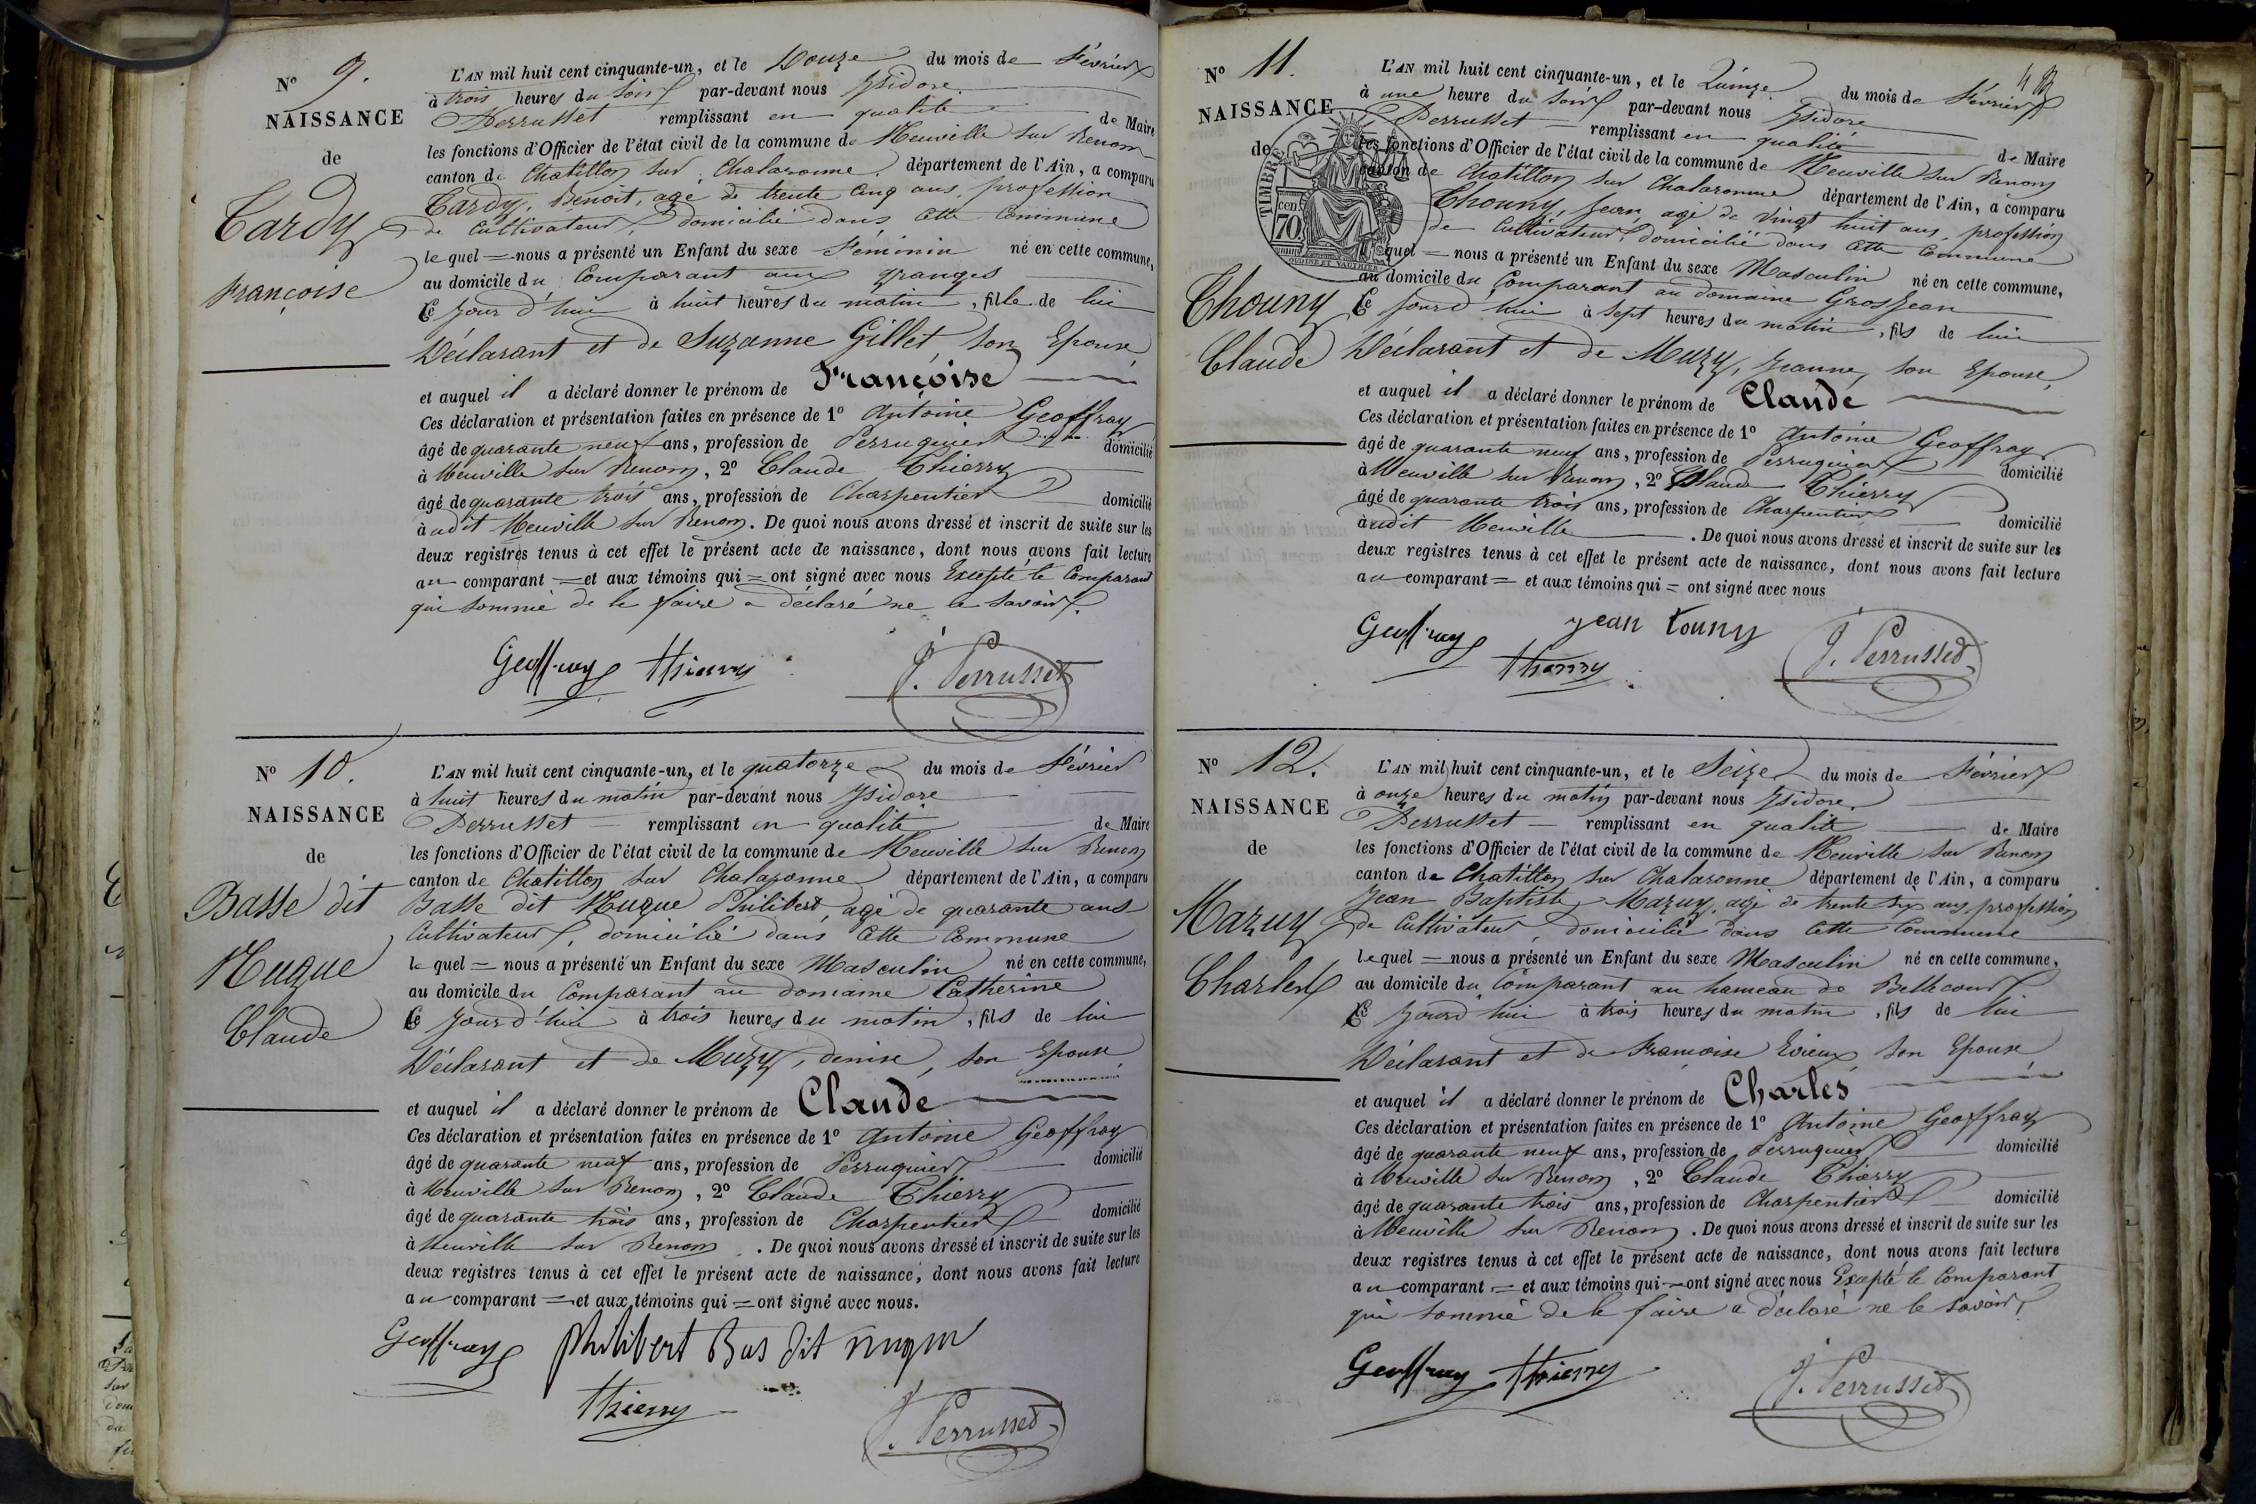 N° 9.
NAISSANCE
de
Cardy
Françoise
L'AN mil huit cent cinquante-un, et le Douze du mois de Février
à trois heures du soir par-devant nous Ysidore
Perrusset remplissant en qualité de Maire
les fonctions d'Officier de l'état civil de la commune de Neuville sur Renom
canton de Chatillon sur Chalaronne département de l'Ain, a comparu
Cardy, Benoit, agé de trente cinq ans, profession
de Cultivateur, domicilié dans cette Commune
lequel = nous a présenté un Enfant du sexe Féminin né en cette commune,
au domicile du Comparant aux granges
Ce jour d'hui à huit heures du matin, fille de lui
Déclarant et de Suzanne Gillet, son Epouse,
et auquel il a déclaré donner le prénom de Françoise
Ces déclaration et présentation faites en présence de 1° Antoine Geoffray
âgé de quarante neuf ans, profession de Perruquier domicilié
à Neuville sur Renom, 2° Claude Thierry
âgé de quarante trois ans, profession de Charpentier domicilié
à udit Neuville sur Renom. De quoi nous avons dressé et inscrit de suite sur les
deux registres tenus à cet effet le présent acte de naissance, dont nous avons fait lecture
au comparant = et aux témoins qui = ont signé avec nous Excepté le Comparant
qui sommé de le faire a déclaré ne le savoir.
Geoffray Thierry J. Perrusset
N° 10.
NAISSANCE
de
Basse dit
Nugue
Claude
L'AN mil huit cent cinquante-un, et le quatorze du mois de Février
à huit heures du matin par-devant nous Ysidore
Perrusset remplissant en qualité de Maire
les fonctions d'Officier de l'état civil de la commune de Neuville sur Renom
canton de Chatillon sur Chalaronne département de l'Ain, a comparu
Basse dit Nugue Philibert, agé de quarante ans
Cultivateur, domicilié dans cette Commune
lequel = nous a présenté un Enfant du sexe Masculin né en cette commune,
au domicile du Comparant au domaine Catherine
Ce jour d'hui à trois heures du matin, fils de lui
Déclarant et de Muzy, denise, son Epouse
et auquel il a déclaré donner le prénom de Claude
Ces déclaration et présentation faites en présence de 1° Antoine Geoffray
âgé de quarante neuf ans, profession de Perruquier domicilié
à Neuville sur Renom, 2° Claude Thierry
âgé de quarante trois ans, profession de Charpentier domicilié
à Neuville sur Renom. De quoi nous avons dressé et inscrit de suite sur les
deux registres tenus à cet effet le présent acte de naissance, dont nous avons fait lecture
au comparant = et aux témoins qui = ont signé avec nous.
Geoffray philibert Bas dit nugue
Thierry J. Perrusset
N° 11.
NAISSANCE
de
TIMBRE
70 cen.
Chouny
Claude
L'AN mil huit cent cinquante-un, et le Quinze du mois de Février
à une heure du soir par-devant nous Ysidore
Perrusset remplissant en qualité de Maire
les fonctions d'Officier de l'état civil de la commune de Neuville sur Renom
canton de Chatillon sur Chalaronne département de l'Ain, a comparu
Chouny, Jean, agé de Vingt huit ans, profession
de Cultivateur, domicilié dans cette Commune
lequel = nous a présenté un Enfant du sexe Masculin né en cette commune,
au domicile du Comparant au domaine Grosjean
Ce jourd'hui à sept heures du matin, fils de lui
Déclarant et de Muzy, Jeanne, son Epouse,
et auquel il a déclaré donner le prénom de Claude
Ces déclaration et présentation faites en présence de 1° Antoine Geoffray
âgé de quarante neuf ans, profession de Perruquier domicilié
à Neuville sur Renom, 2° Claude Thierry
âgé de quarante trois ans, profession de Charpentier domicilié
àudit Neuville. De quoi nous avons dressé et inscrit de suite sur les
deux registres tenus à cet effet le présent acte de naissance, dont nous avons fait lecture
au comparant = et aux témoins qui = ont signé avec nous
Geoffray jean touny
Thierry J. Perrusset
N° 12.
NAISSANCE
de
Mazuy
Charles
L'AN mil huit cent cinquante-un, et le Seize du mois de Février
à onze heures du matin par-devant nous Ysidore
Perrusset remplissant en qualité de Maire
les fonctions d'Officier de l'état civil de la commune de Neuville sur Renom
canton de Chatillon sur Chalaronne département de l'Ain, a comparu
Jean Baptiste Mazuy, agé de trente six ans, profession
de Cultivateur, domicilié dans cette Commune
lequel = nous a présenté un Enfant du sexe Masculin né en cette commune,
au domicile du Comparant au hameau de Bellecour
Ce jourd'hui à trois heures du matin, fils de lui
Déclarant et de Françoise Evieux son Epouse
et auquel il a déclaré donner le prénom de Charles
Ces déclaration et présentation faites en présence de 1° Antoine Geoffray
âgé de quarante neuf ans, profession de Perruquier domicilié
à Neuville sur Renom, 2° Claude Thierry
âgé de quarante trois ans, profession de Charpentier domicilié
à Neuville sur Renom. De quoi nous avons dressé et inscrit de suite sur les
deux registres tenus à cet effet le présent acte de naissance, dont nous avons fait lecture
au comparant = et aux témoins qui = ont signé avec nous Excepté le Comparant
qui sommé de le faire a déclaré ne le savoir.
Geoffray Thierry J. Perrusset